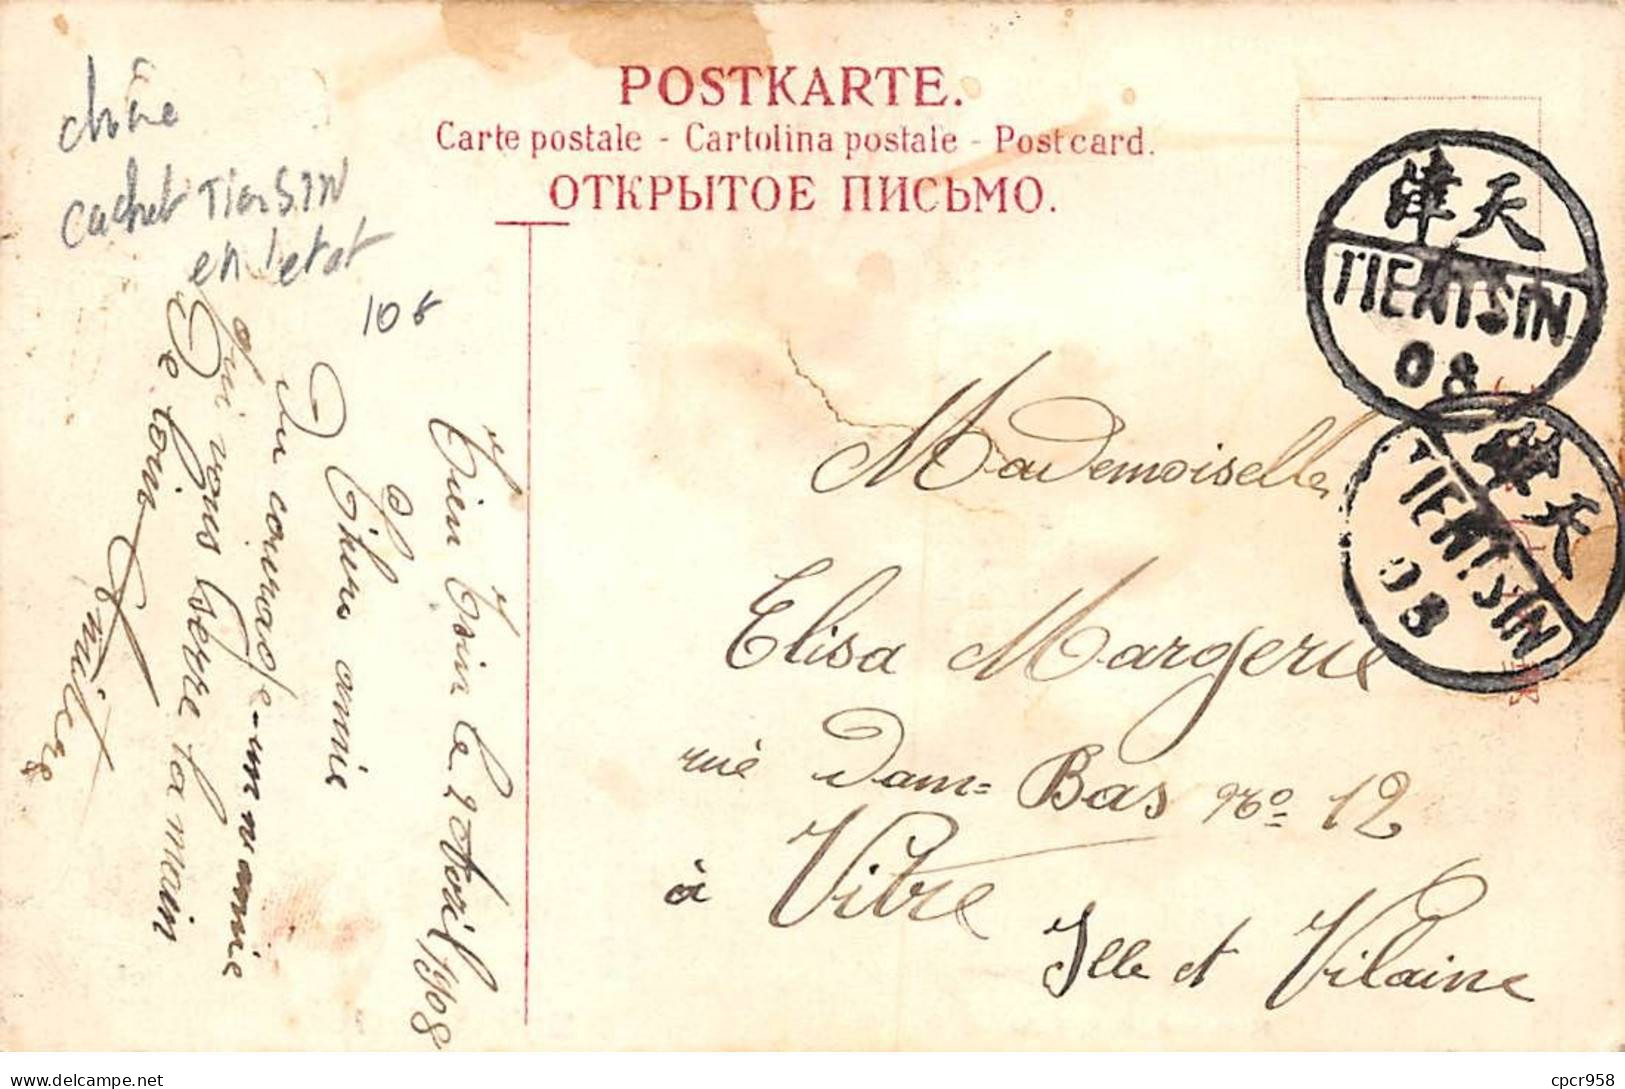 POSTKARTE.
Carte postale - Cartolina postale - Postcard.
ОТКРЫТОЕ ПИСЬМО.
chine
cachet TienSIN
en l'etat
10 €
津天
TIENTSIN
08
津天
TIENTSIN
08
Tien Tsin le 2 Avril 1908
Chère amie
Du courage mamie
Qui vous serre la main
De loin
Mademoiselle
Elisa Margerie
rue Dam= Bas No 12
à Vitré
Ille et Vilaine
cpcr958